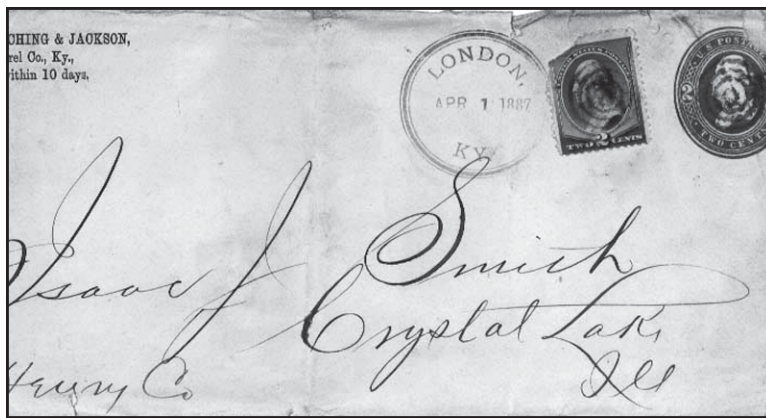 CHING & JACKSON,
rel Co., Ky.,
within 10 days.
LONDON,
APR 1 1887
KY.
UNITED STATES POSTAGE
TWO 2 CENTS
U.S. POSTAGE
2
TWO CENT
Isaac J Smith
Crystal Lake
Henry Co
Ills